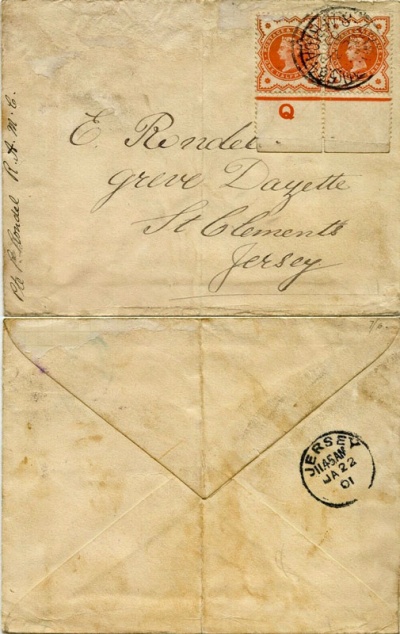 E. Rondel
Greve Dazette
St Clements
Jersey
Pte P. Rondel R. A. M. C.
Q
JERSEY
11.45AM
JA 22
01